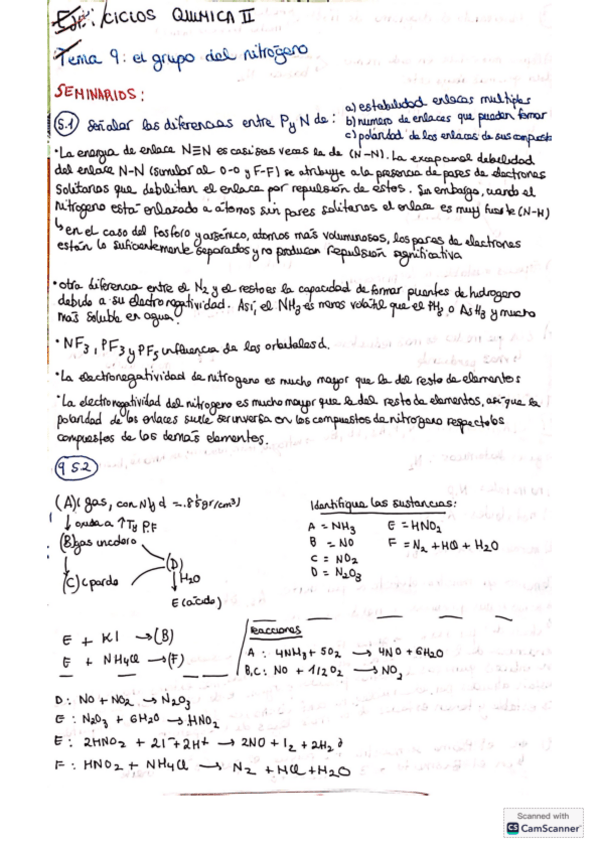 CICLOS QUIMICA II
Tema 9: el grupo del nitrógeno
SEMINARIOS:
5.1 Señalar las diferencias entre P y N de: a) estabilidad enlaces multiples
b) numero de enlaces que pueden formar
c) polaridad de los enlaces de sus compuestos
• La energia de enlace N≡N es casi seis veces la de (N-N). La excepcional debilidad
del enlace N-N (similar al O-O y F-F) se atribuye a la presencia de pares de electrones
solitarios que debilitan el enlace por repulsión de estos. Sin embargo, cuando el
nitrogeno está enlazado a átomos sin pares solitarios el enlace es muy fuerte (N-H)
↳ en el caso del fosforo y arsénico, atomos más voluminosos, los pares de electrones
están lo suficientemente separados y no producen repulsión significativa
• otra diferencia entre el N2 y el resto es la capacidad de formar puentes de hidrogeno
debido a su electronegatividad. Así, el NH3 es menos volátil que el PH3 o AsH3 y mucho
más soluble en agua.
• NF3, PF3 y PF5 influencia de los orbitales d.
• La electronegatividad de nitrogeno es mucho mayor que la del resto de elementos
• La electronegatividad del nitrogeno es mucho mayor que la del resto de elementos, asi que la
polaridad de los enlaces suele ser inversa en los compuestos de nitrogeno respecto los
compuestos de los demás elementos.
9 5.2
(A)( gas, con N y d
↓ a ↑T y P.F
(B)gas incoloro
(C)( pardo
(D)
↓ H2O
E (ácido)
Identifique las sustancias:
A = NH3 E = HNO2
B = NO F = N2 + HCl + H2O
C = NO2
D = N2O3
E + KI → (B)
E + NH4Cl → (F)
Reacciones
A: 4NH3 + 5O2 → 4NO + 6H2O
B,C: NO + 1/2 O2 → NO2
D: NO + NO2 → N2O3
E: N2O3 + 6H2O → HNO2
E: 2HNO2 + 2I⁻ + 2H⁺ → 2NO + I2 + 2H2O
F: HNO2 + NH4Cl → N2 + HCl + H2O
Scanned with
CS CamScanner